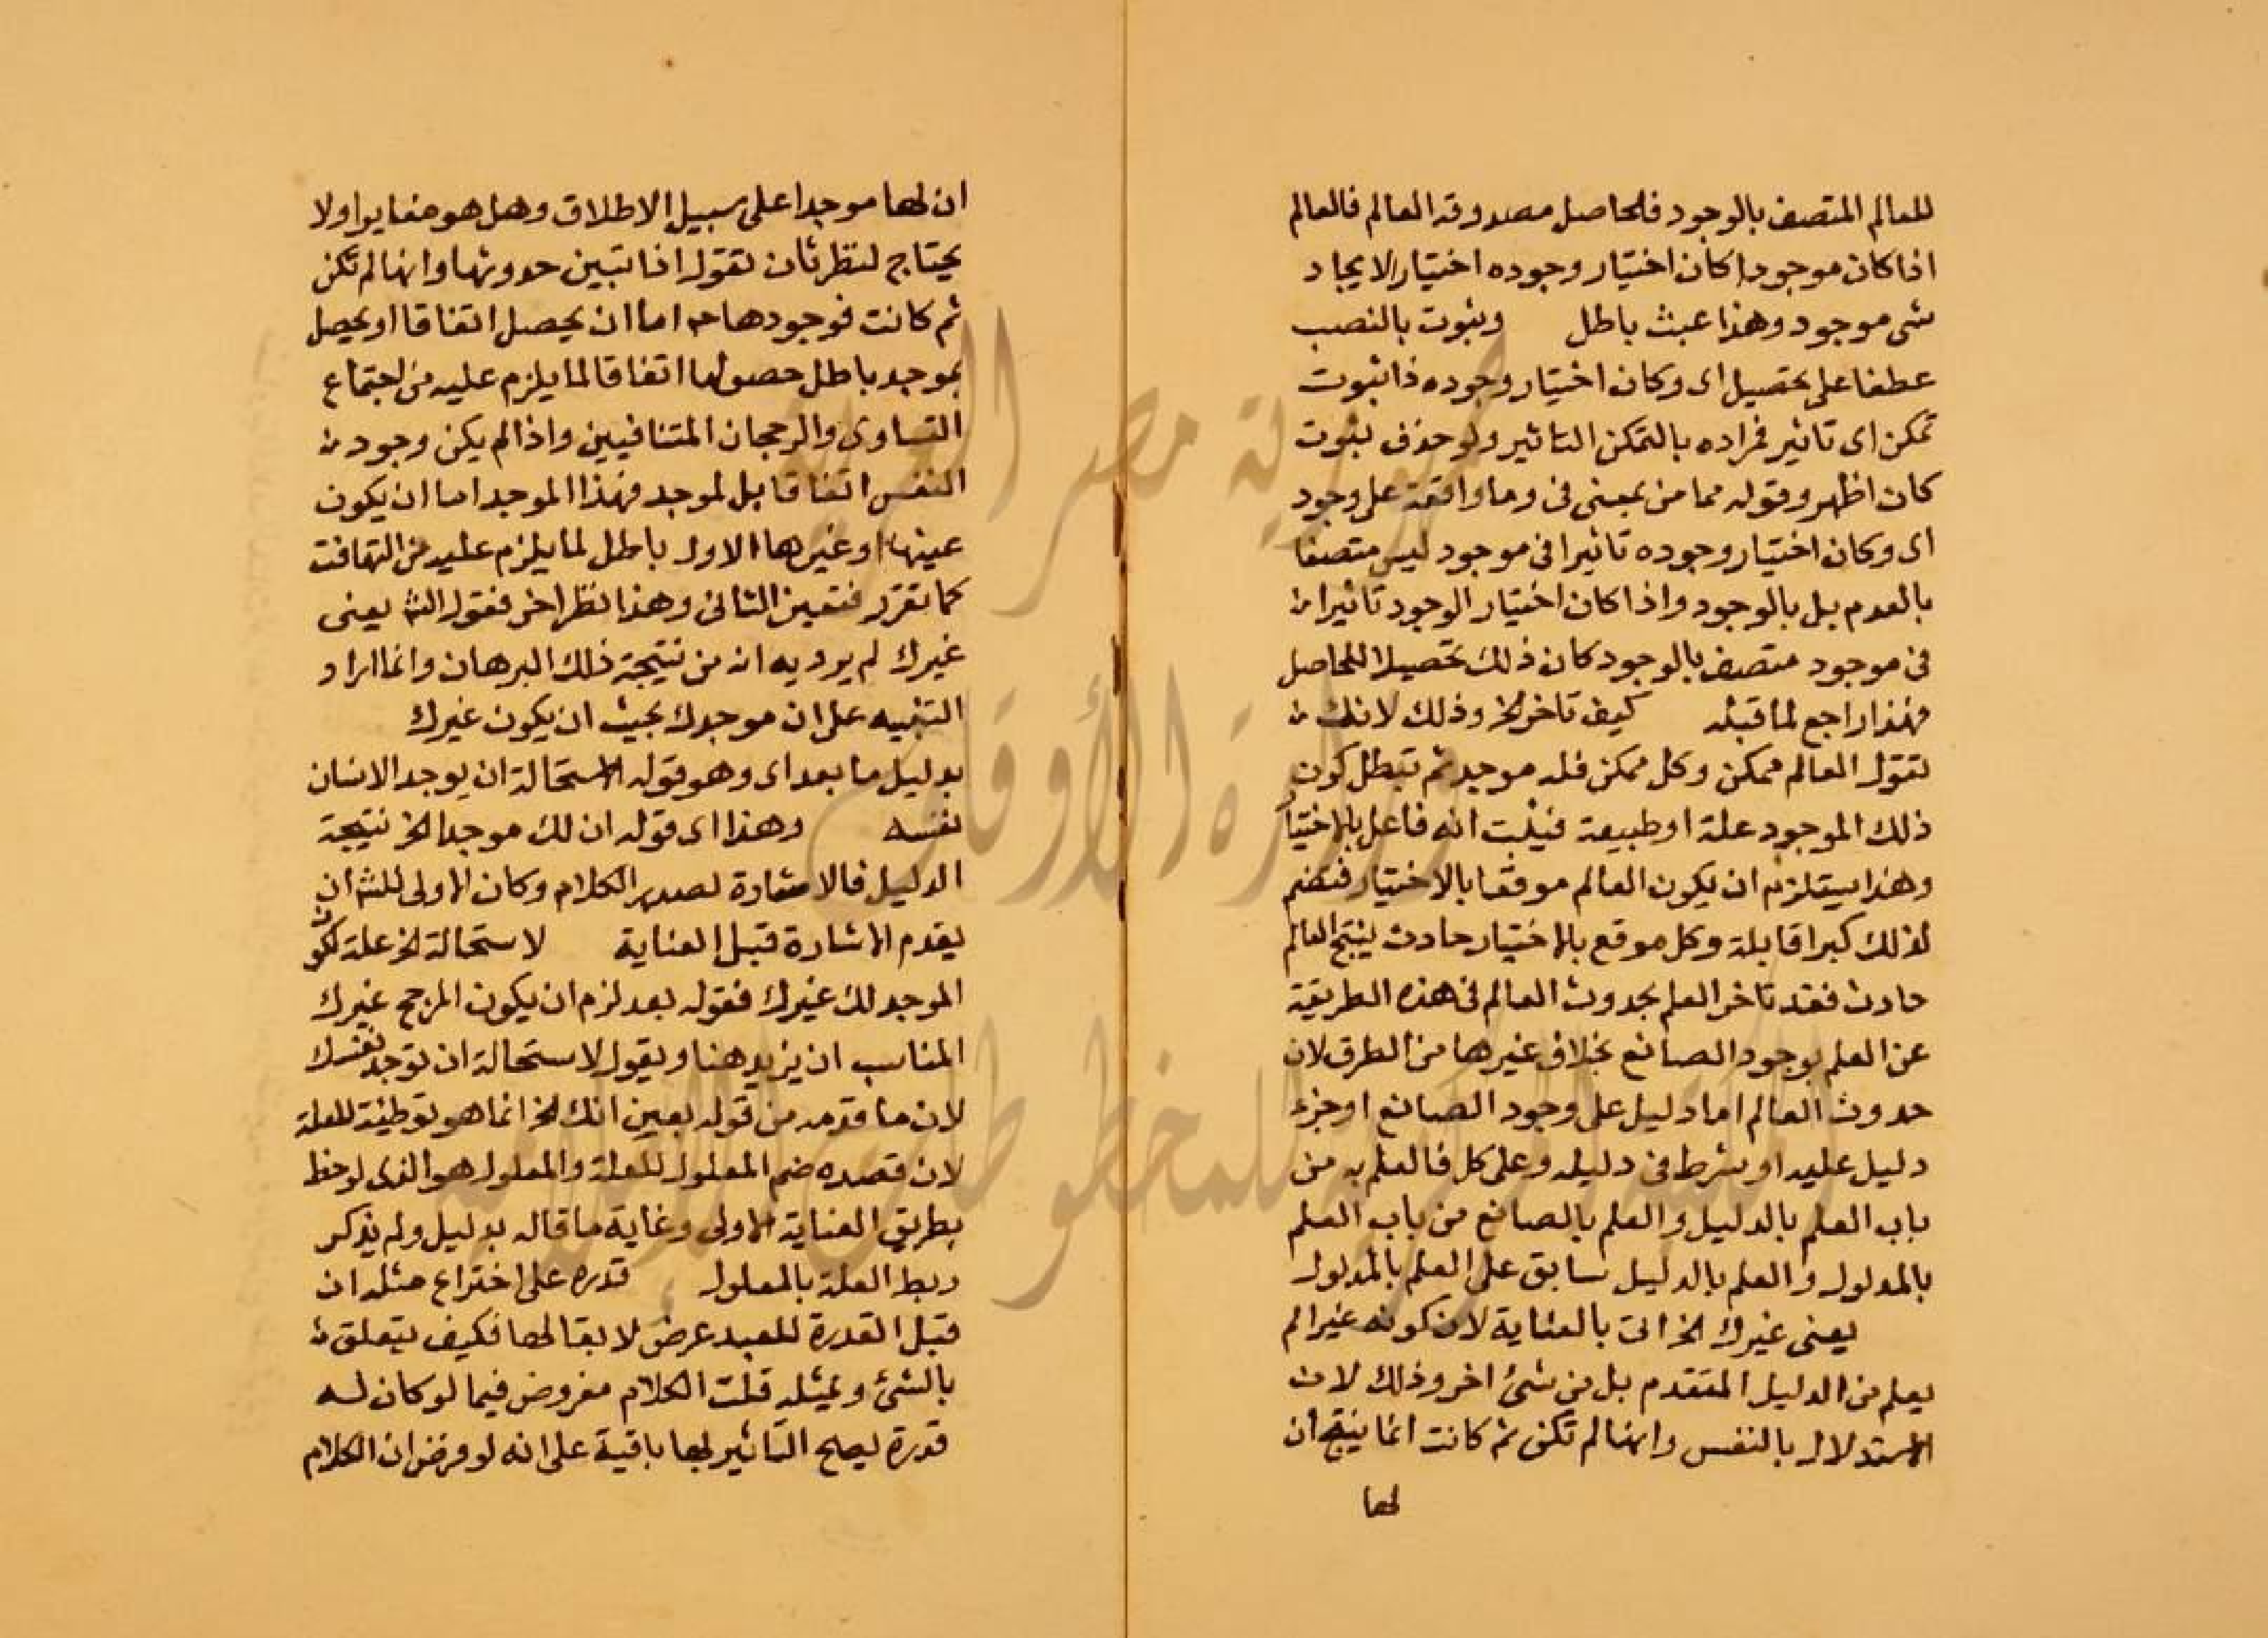 للعالم المتصف بالوجود فالحاصل مصدوقه العالم فالعالم
اذا كان موجودا كان اختيار وجوده اختيار الايجاد
شى موجود وهذا عبث باطل وثبوت بالنصب
عطفا على تحصيل اى وكان اختيار وجوده ذا ثبوت
تمكن اى تاثير فمراده بالتمكن التاثير ولو حذف ثبوت
كان اظهر وقوله مما من بمعنى فى وما واقعة على وجود
اى وكان اختيار وجوده تاثيرا فى موجود ليس متصفا
بالعدم بل بالوجود واذا كان اختيار الوجود تاثيرا
فى موجود متصف بالوجود كان ذلك تحصيلا للحاصل
فهذا راجع لما قبله كيف تاخر الخ وذلك لانك
تقول العالم ممكن وكل ممكن فله موجد ثم تبطل كون
ذلك الموجود علة او طبيعة فيثبت انه فاعل بالاختيار
وهذا يستلزم ان يكون العالم موقعا بالاختيار فتضم
لذلك كبرا قايلة وكل موقع بالاختيار حادث ينتج العالم
حادث فقد تاخر العلم بحدوث العالم فى هذه الطريقة
عن العلم بوجود الصانع بخلاف غيرها من الطرق لان
حدوث العالم اما دليل على وجود الصانع او جزء
دليل عليه او شرط فى دليله وعلى كل فالعلم به من
باب العلم بالدليل والعلم بالصانع من باب العلم
بالمدلول والعلم بالدليل سابق على العلم بالمدلول
يعنى غيرك الخ اتى بالعناية لان كونه غيرا لم
يعلم من الدليل المتقدم بل من شئ اخر وذلك لان
الاستدلال بالنفس وانها لم تكن ثم كانت انما ينتج ان
لها
ان لها موجدا على سبيل الاطلاق وهل هو مغايرا ولا
يحتاج لنظر ثان تقول اذا تبين حدوثها وانها لم تكن
ثم كانت فوجودها اما ان يحصل اتفاقا او يحصل
بموجد باطل حصولها اتفاقا لما يلزم عليه من اجتماع
التساوى والرجحان المتنافيين واذا لم يكن وجود
النفس اتفاقا بل لموجد فهذا الموجد اما ان يكون
عينها او غيرها الاول باطل لما يلزم عليه من التهافت
كما تقرر فتعين الثانى وهذا نظر اخر فقول الش يعنى
غيرك لم يرد به انه من نتيجة ذلك البرهان وانما اراد
التنبيه على ان موجدك بحيث ان يكون غيرك
بدليل ما بعد اى وهو قوله لاستحالة ان يوجد الانسان
نفسه وهذا اى قوله ان لك موجدا الخ نتيجة
الدليل فالاشارة لصدر الكلام وكان الاولى للش ان
يقدم الاشارة قبل العناية لاستحالة الخ علة لكون
الموجد لك غيرك فقوله بعد لزم ان يكون المرجح غيرك
المناسب ان يزيد هنا ويقول لاستحالة ان توجد نفسك
لان ما قدمه من قوله بعين انك الخ انما هو توطية للعلة
لان قصده ضم المعلول للعلة والمعلول هو الذى لوحظ
بطريق العناية الاولى وغاية ما قاله بدليل ولم يذكر
ربط العلة بالمعلول قدره على اختراع مثله ان
قبل القدرة للعبد عرض لا بقا لها فكيف يتعلق
بالشئ وبمثله قلت الكلام مفروض فيما لو كان له
قدرة ليصلح التاثير لها باقية على انه لو فرض ان الكلام
جمهورية مصر العربية
وزارة الأوقاف
المكتبة المركزية للمخطوطات الإسلامية